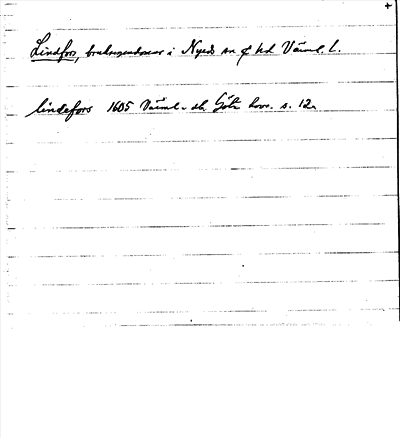 +
Lindfors, bruksegendomar i Nyeds sn o hd Värml. l.
lindefors 1605 Värml. Göta s. 12